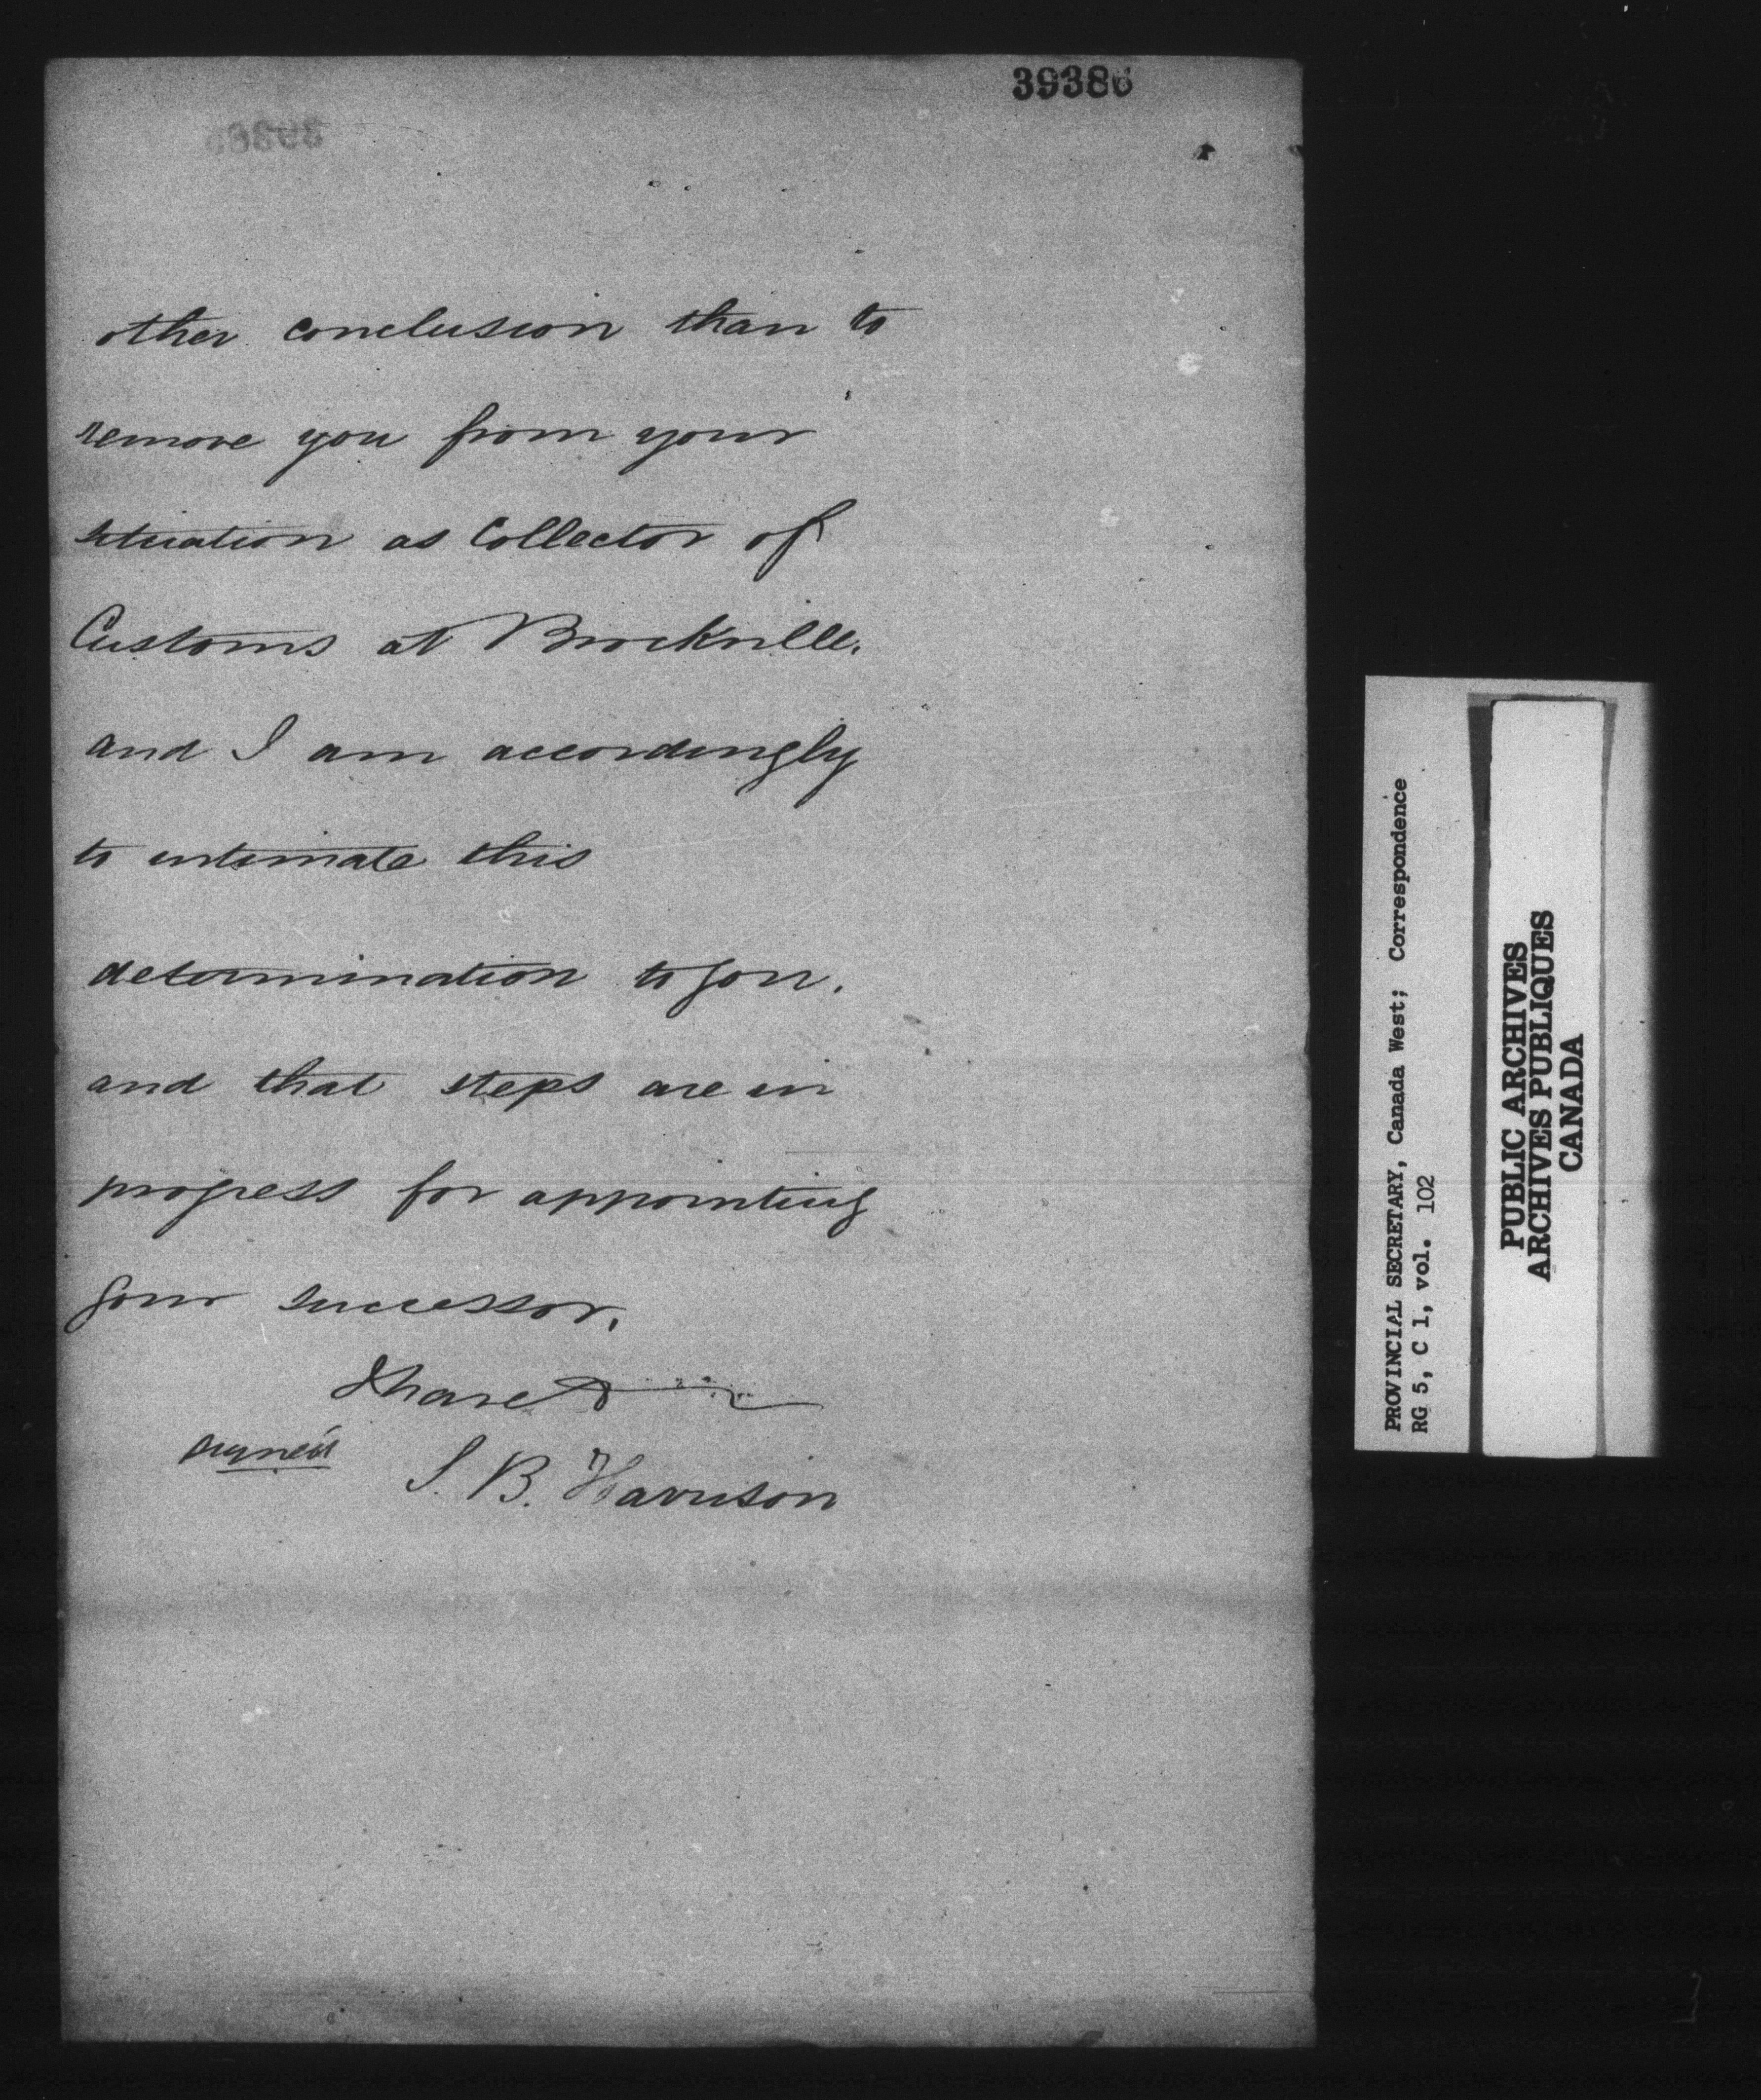 39386
other conclusion than to
remove you from your
situation as Collector of
Customs at Brockville.
and I am accordingly
to intimate this
determination to you.
and that steps are in
progress for appointing
your successor.
I have &
signed S. B. Harrison
PROVINCIAL SECRETARY, Canada West; Correspondence
RG 5, C 1, vol. 102
PUBLIC ARCHIVES
ARCHIVES PUBLIQUES
CANADA